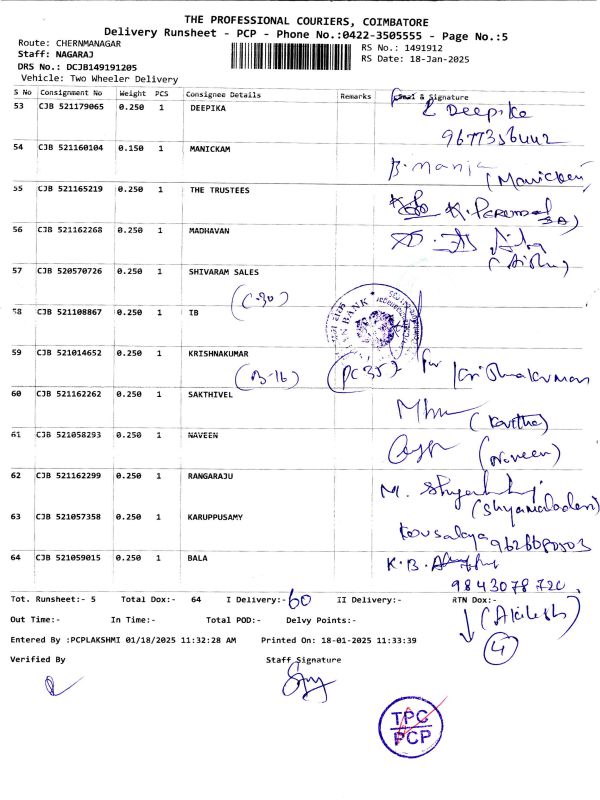 THE PROFESSIONAL COURIERS, COIMBATORE
Delivery Runsheet - PCP - Phone No.:0422-3505555 - Page No.:5
Route: CHERNMANAGAR
RS No.: 1491912
Staff: NAGARAJ
RS Date: 18-Jan-2025
DRS No.: DCJB149191205
Vehicle: Two Wheeler Delivery
S No Consignment No Weight PCS Consignee Details Remarks & Signature
53 CJB 521179065 0.250 1 DEEPIKA Deepika
54 CJB 521160104 0.150 1 MANICKAM
B. (Manickam)
55 CJB 521165219 0.250 1 THE TRUSTEES
56 CJB 521162268 0.250 1 MADHAVAN
57 CJB 520570726 0.250 1 SHIVARAM SALES
(C-30)
58 CJB 521108867 0.250 1 IB
BANK
59 CJB 521014652 0.250 1 KRISHNAKUMAR
(B-16) (PC 357 for Krishnakumar
60 CJB 521162262 0.250 1 SAKTHIVEL
(Kavitha)
61 CJB 521058293 0.250 1 NAVEEN
(Naveen)
62 CJB 521162299 0.250 1 RANGARAJU
M.
63 CJB 521057358 0.250 1 KARUPPUSAMY
Kousalaya
64 CJB 521059015 0.250 1 BALA K.B.
9843078720
Tot. Runsheet:- 5 Total Dox:- 64 I Delivery:- 60 II Delivery:- RTN Dox:-
(Akilesh)
Out Time:- In Time:- Total POD:- Delvy Points:-
4
Entered By :PCPLAKSHMI 01/18/2025 11:32:28 AM Printed On: 18-01-2025 11:33:39
Verified By Staff Signature
TPC
PCP